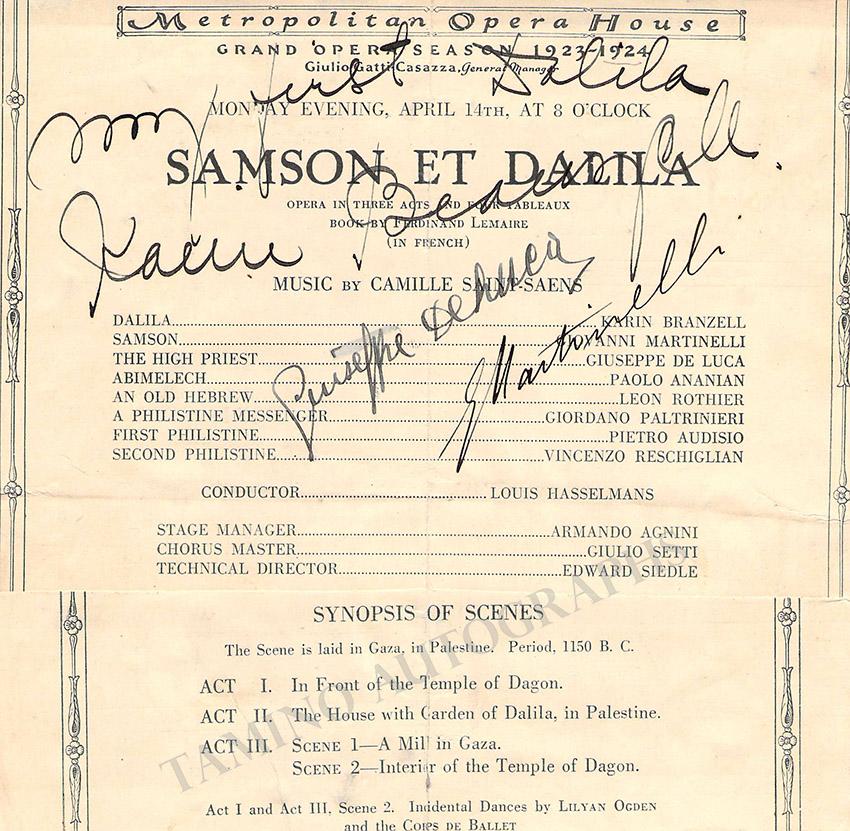 Metropolitan Opera House
GRAND OPERA SEASON 1923-1924
Giulio Gatti-Casazza, General Manager
my first Dalila
MONDAY EVENING, APRIL 14TH, AT 8 O'CLOCK
SAMSON ET DALILA
OPERA IN THREE ACTS AND FOUR TABLEAUX
BOOK BY FERDINAND LEMAIRE
(IN FRENCH)
Karin Branzell.
MUSIC BY CAMILLE SAINT-SAENS
Giuseppe DeLuca
G Martinelli
DALILA KARIN BRANZELL
SAMSON GIOVANNI MARTINELLI
THE HIGH PRIEST GIUSEPPE DE LUCA
ABIMELECH PAOLO ANANIAN
AN OLD HEBREW LEON ROTHIER
A PHILISTINE MESSENGER GIORDANO PALTRINIERI
FIRST PHILISTINE PIETRO AUDISIO
SECOND PHILISTINE VINCENZO RESCHIGLIAN
CONDUCTOR LOUIS HASSELMANS
STAGE MANAGER ARMANDO AGNINI
CHORUS MASTER GIULIO SETTI
TECHNICAL DIRECTOR EDWARD SIEDLE
TAMINO AUTOGRAPHS
SYNOPSIS OF SCENES
The Scene is laid in Gaza, in Palestine. Period, 1150 B. C.
ACT I. In Front of the Temple of Dagon.
ACT II. The House with Garden of Dalila, in Palestine.
ACT III. SCENE 1—A Mill in Gaza.
SCENE 2—Interior of the Temple of Dagon.
Act I and Act III, Scene 2. Incidental Dances by LILYAN OGDEN
and the CORPS DE BALLET